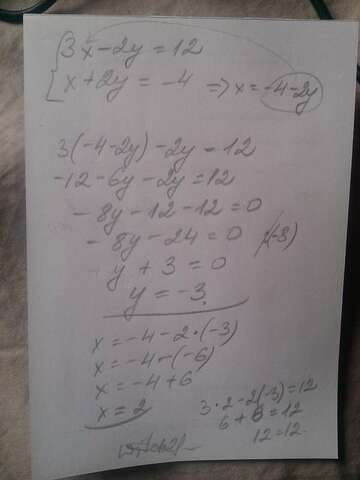 3x-2y=12
x+2y=-4 => x=-4-2y
3(-4-2y)-2y=12
-12-6y-2y=12
-8y-12-12=0
-8y-24=0
y+3=0
y=-3
x=-4-2·(-3)
x=-4-(-6)
x=-4+6
x=2
3·2-2(-3)=12
6+6=12
12=12